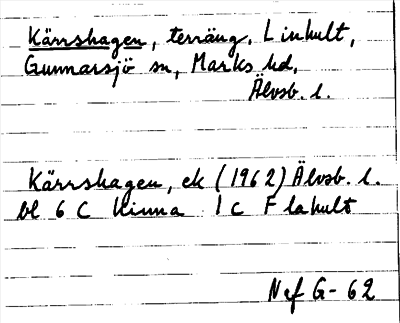 Kärrshagen, terräng, Linhult,
Gunnarsjö sn, Marks hd,
Älvsb. l.
Kärrshagen, ek (1962) Älvsb. l.
bl 6 C Kinna 1 c Flahult
Nef G-62